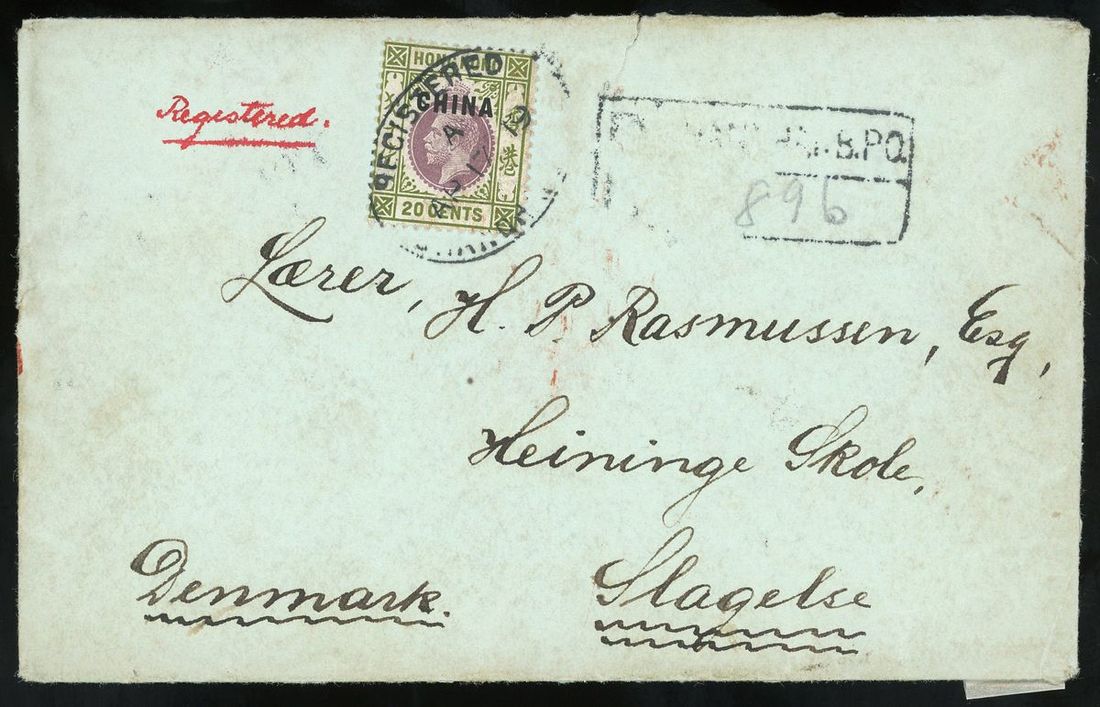 Registered.
HONG KONG
CHINA
香港
20 CENTS
REGISTERED
A
AP 17
B.P.O.
896
Lærer, H. P. Rasmussen, Esq,
Heininge Skole,
Denmark. Slagelse